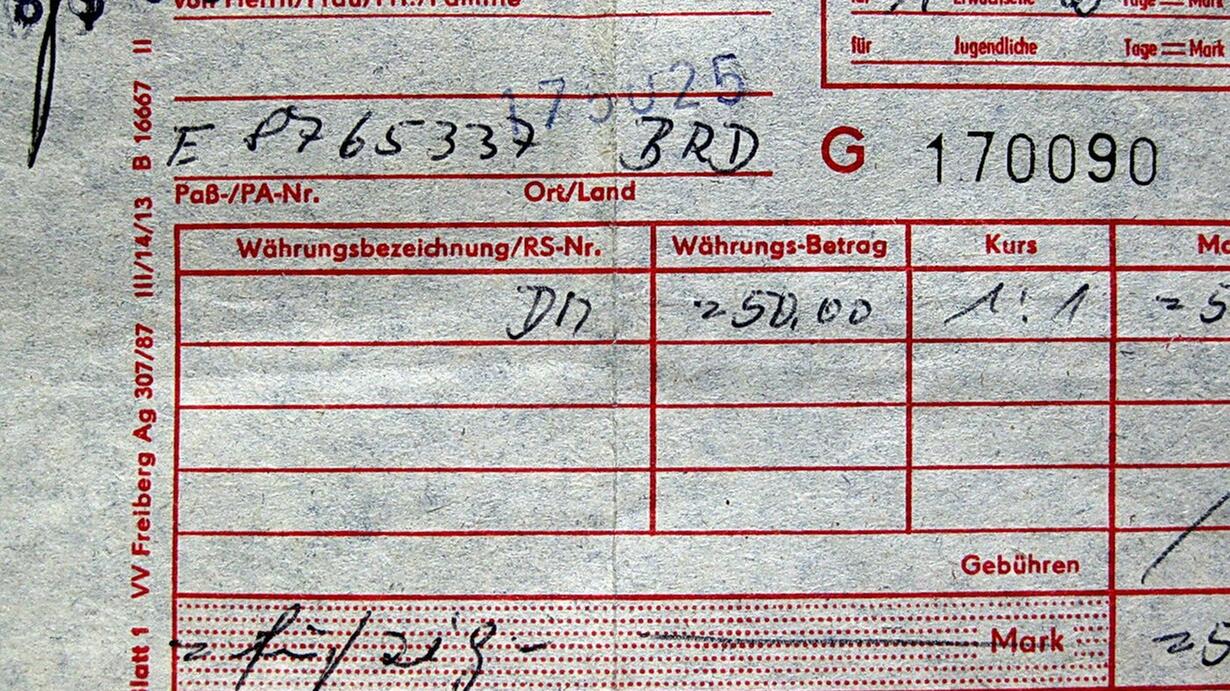 von Herrn/Frau/Frl./Familie
für Erwachsene Tage = Mark
für Jugendliche Tage = Mark
175025
E 8765337 BRD G 170090
Paß-/PA-Nr. Ort/Land
Währungsbezeichnung/RS-Nr. Währungs-Betrag Kurs
DM =50,00 1:1 =5
Gebühren
= fünfzig - Mark =5
Blatt 1 VV Freiberg Ag 307/87 III/14/13 B 16667 II